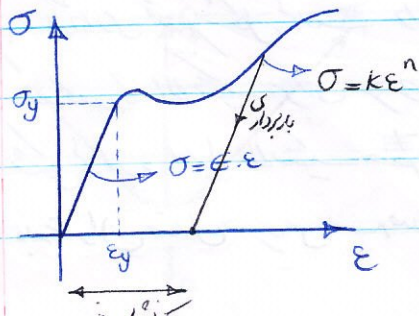 σ
σ = kεⁿ
σy
باربرداری
σ = E·ε
εy
ε